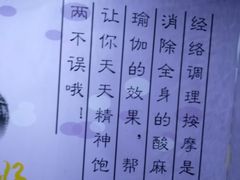 经络调理按摩是
消除全身的酸麻
瑜伽的效果，帮
让你天天精神饱
两不误哦！